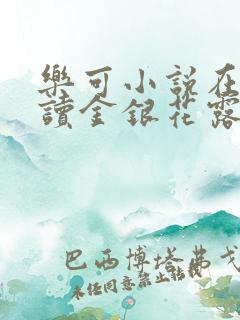 樂可小說在
讀金銀花露
巴西博塔弗戈
未经同意禁止转载